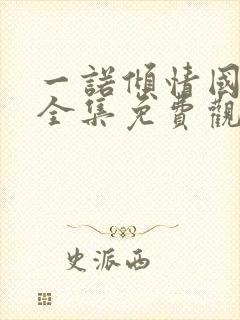 一諾傾情國
全集免費觀
史派西